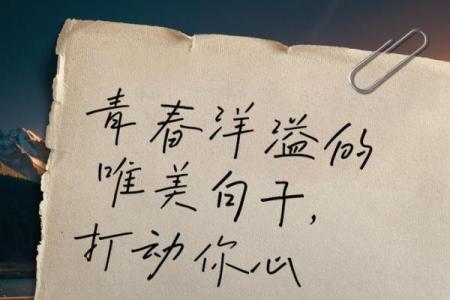 青春洋溢的
唯美句子,
打动你心